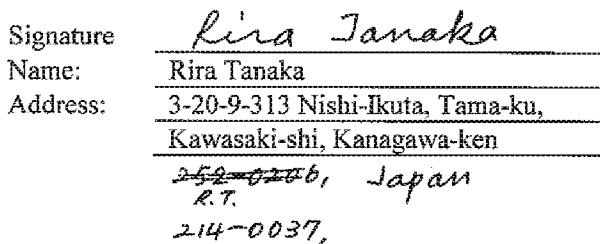 Signature Rira Tanaka
Name: Rira Tanaka
Address: 3-20-9-313 Nishi-Ikuta, Tama-ku,
Kawasaki-shi, Kanagawa-ken
Japan
R.T.
214-0037,